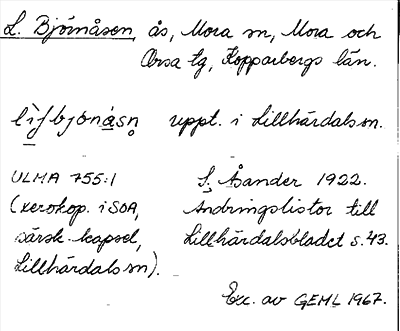 L. Björnåsen, ås, Mora sn, Mora och
Orsa tg, Kopparbergs län.
lìſbjònásn̥ uppt. i Lillhärdal sn.
ULMA 755:1 S. Åsander 1922.
(xerokop. i SOA, Ändringslistor till
särsk. kapsel, Lillhärdalsbladet s. 43.
Lillhärdals sn).
Exc. av GEML 1967.